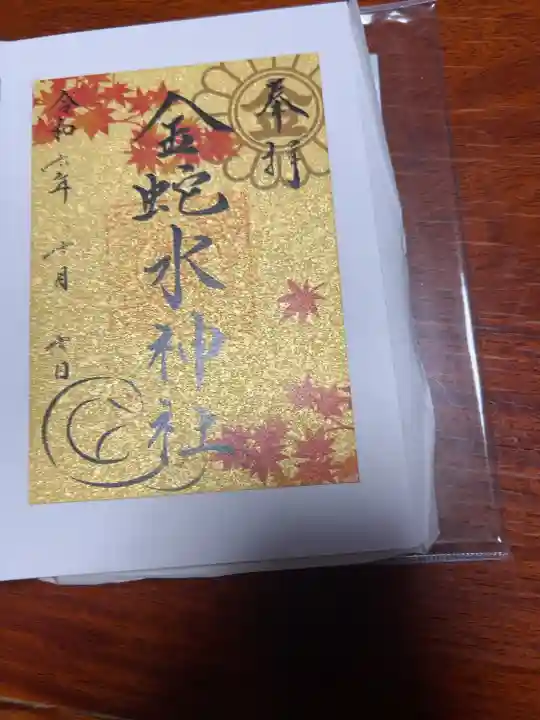 奉拝
金
金蛇水神社
令和六年 十月 七日